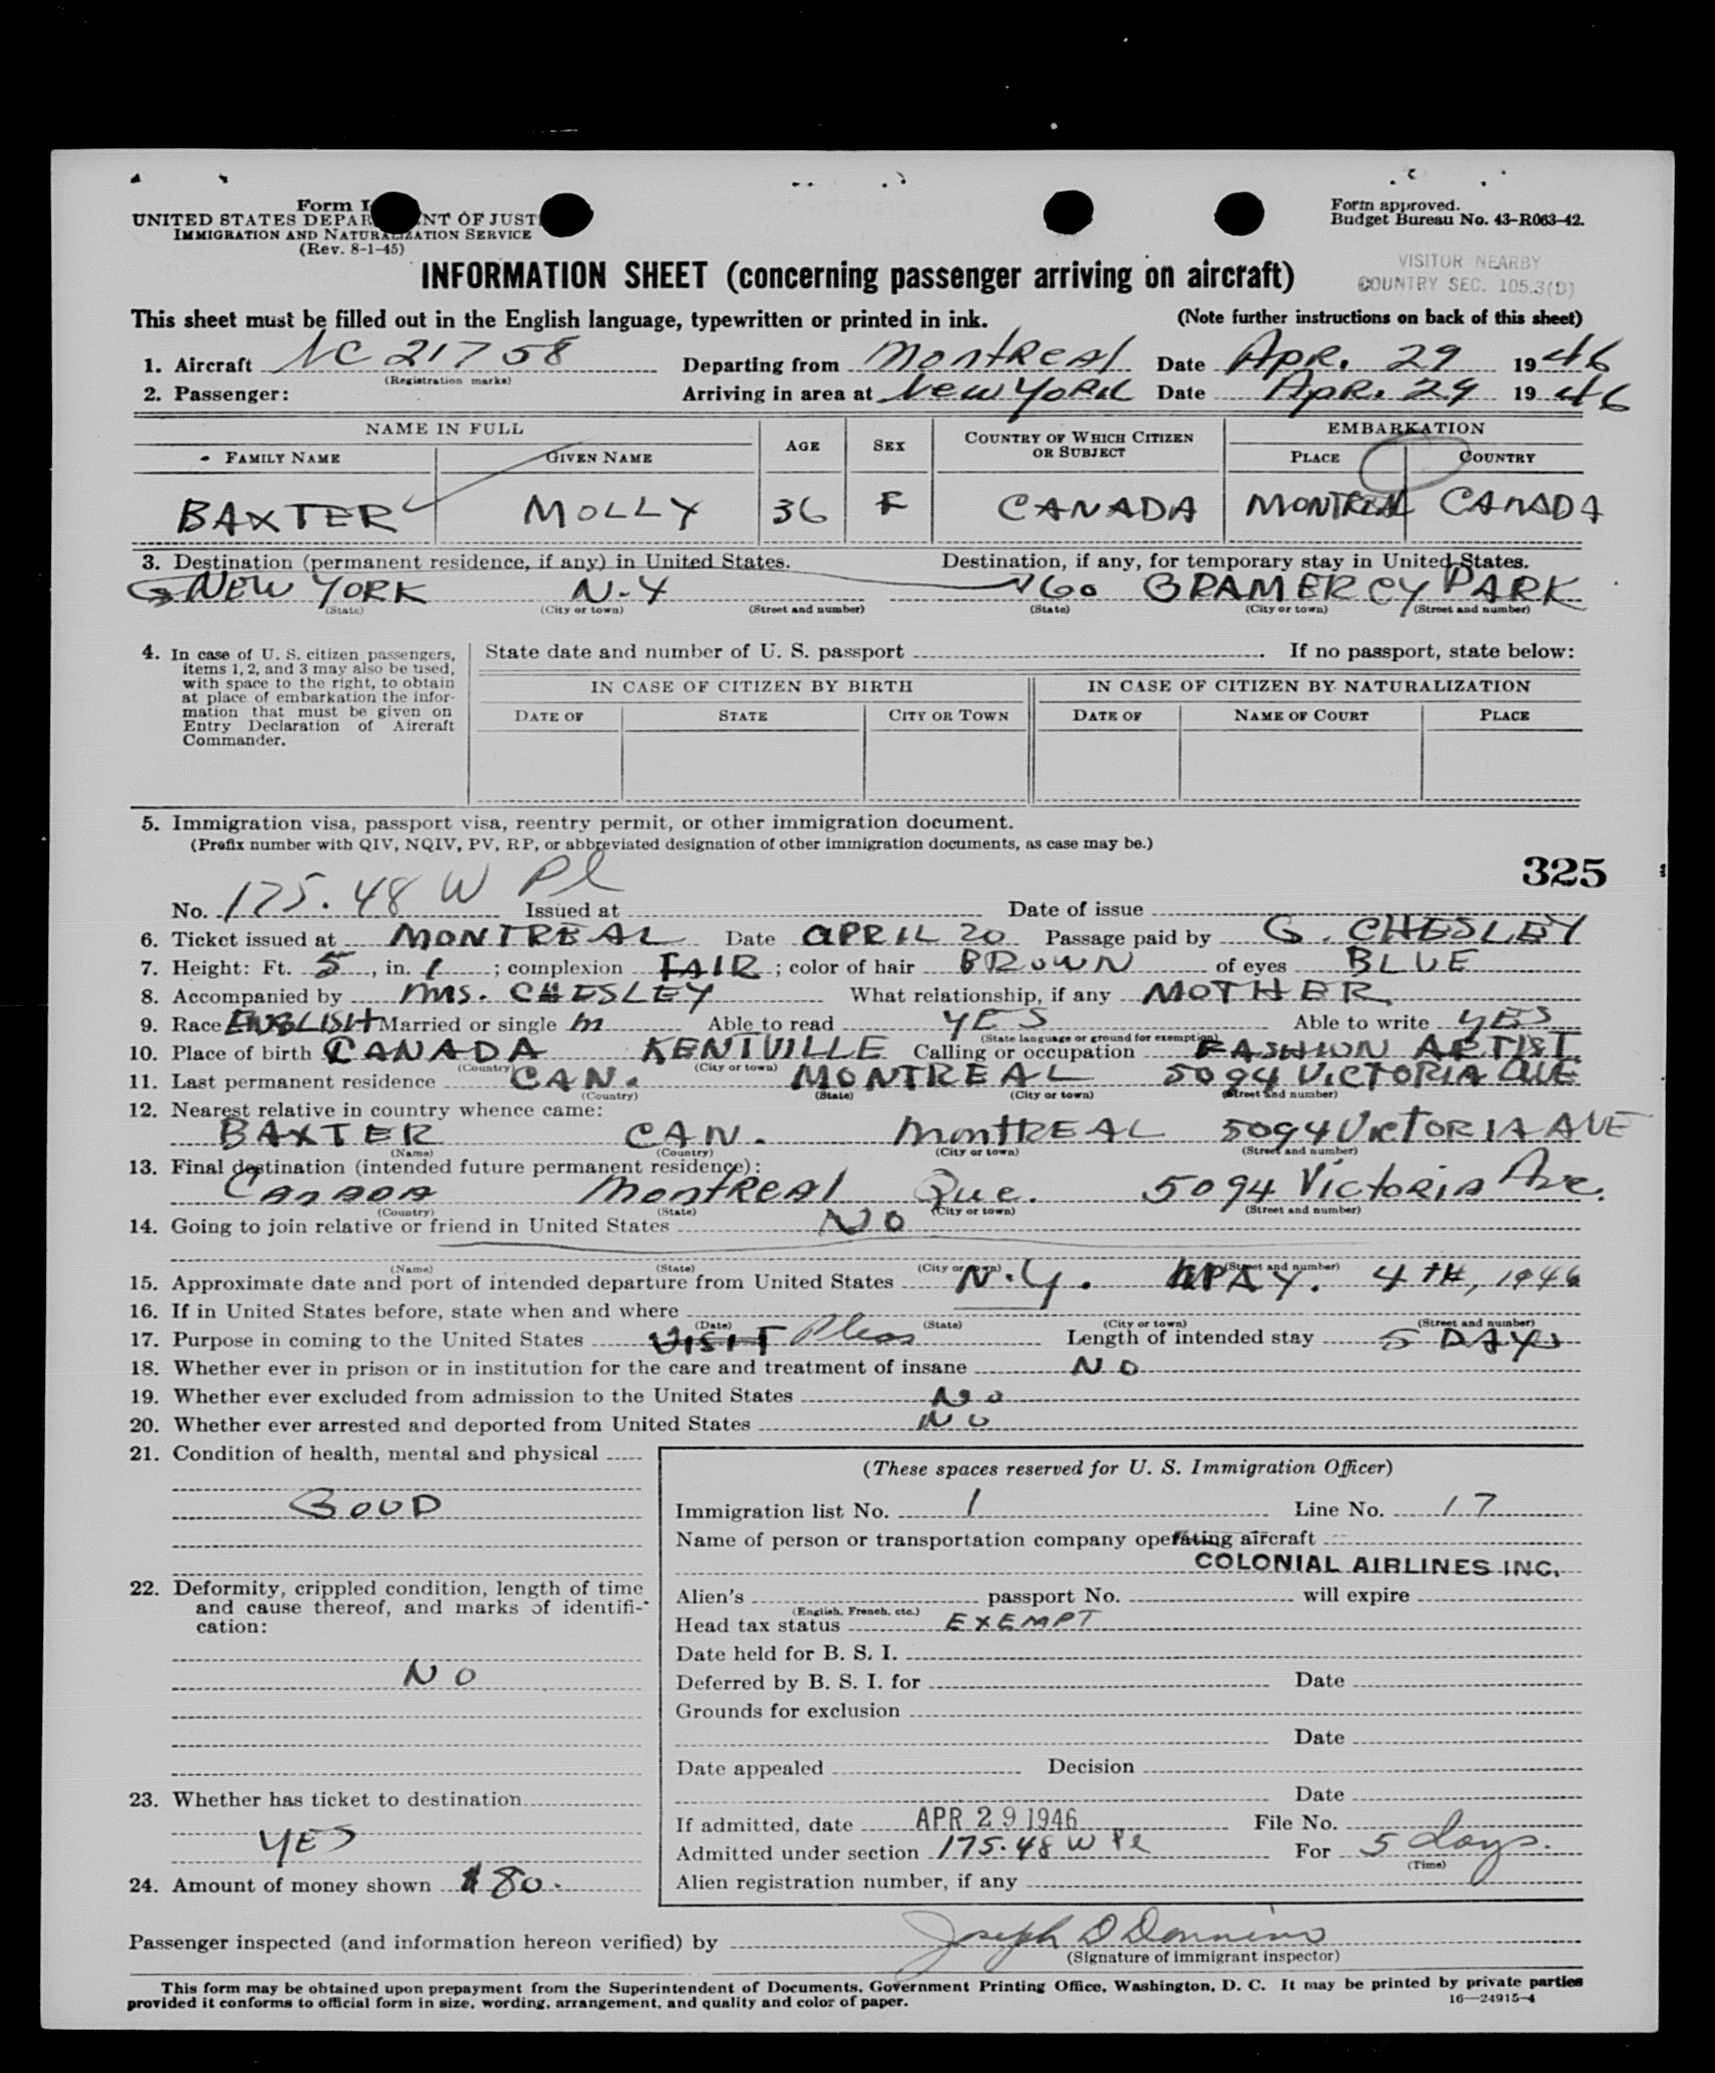 Form I
UNITED STATES DEPAR NT OF JUST
IMMIGRATION AND NATURALIZATION SERVICE
(Rev. 8-1-45)
Form approved.
Budget Bureau No. 43-R063-42.
VISITOR NEARBY
COUNTRY SEC. 105.3(D)
INFORMATION SHEET (concerning passenger arriving on aircraft)
This sheet must be filled out in the English language, typewritten or printed in ink. (Note further instructions on back of this sheet)
1. Aircraft NC 21758 Departing from Montreal Date Apr. 29 1946
(Registration marks)
2. Passenger: Arriving in area at New York Date Apr. 29 1946
NAME IN FULL AGE SEX COUNTRY OF WHICH CITIZEN OR SUBJECT EMBARKATION
FAMILY NAME GIVEN NAME PLACE COUNTRY
BAXTER MOLLY 36 F CANADA MONTREAL CANADA
3. Destination (permanent residence, if any) in United States. Destination, if any, for temporary stay in United States.
NEW YORK N.Y 60 GRAMERCY PARK
(State) (City or town) (Street and number) (State) (City or town) (Street and number)
4. In case of U. S. citizen passengers, items 1, 2, and 3 may also be used, with space to the right, to obtain at place of embarkation the information that must be given on Entry Declaration of Aircraft Commander.
State date and number of U. S. passport If no passport, state below:
IN CASE OF CITIZEN BY BIRTH IN CASE OF CITIZEN BY NATURALIZATION
DATE OF STATE CITY OR TOWN DATE OF NAME OF COURT PLACE
5. Immigration visa, passport visa, reentry permit, or other immigration document.
(Prefix number with QIV, NQIV, PV, RP, or abbreviated designation of other immigration documents, as case may be.)
325
No. 175.48 W Pl Issued at Date of issue
6. Ticket issued at MONTREAL Date APRIL 20 Passage paid by G. CHESLEY
7. Height: Ft. 5, in. 1; complexion FAIR; color of hair BROWN of eyes BLUE
8. Accompanied by MRS. CHESLEY What relationship, if any MOTHER
9. Race ENGLISH Married or single M Able to read YES Able to write YES
(State language or ground for exemption)
10. Place of birth CANADA KENTVILLE Calling or occupation FASHION ARTIST
(Country) (City or town)
11. Last permanent residence CAN. MONTREAL 5094 VICTORIA AVE
(Country) (State) (City or town) (Street and number)
12. Nearest relative in country whence came:
BAXTER CAN. MONTREAL 5094 VICTORIA AVE
(Name) (Country) (City or town) (Street and number)
13. Final destination (intended future permanent residence):
Canada Montreal Que. 5094 Victoria Ave.
(Country) (State) (City or town) (Street and number)
14. Going to join relative or friend in United States NO
(Name) (State) (City or town) (Street and number)
15. Approximate date and port of intended departure from United States N.Y. MAY. 4TH, 1946
16. If in United States before, state when and where
(Date) (State) (City or town) (Street and number)
17. Purpose in coming to the United States VISIT Pleas Length of intended stay 5 DAYS
18. Whether ever in prison or in institution for the care and treatment of insane NO
19. Whether ever excluded from admission to the United States NO
20. Whether ever arrested and deported from United States NO
21. Condition of health, mental and physical
GOOD
22. Deformity, crippled condition, length of time and cause thereof, and marks of identification:
NO
23. Whether has ticket to destination
YES
24. Amount of money shown $80.
(These spaces reserved for U. S. Immigration Officer)
Immigration list No. 1 Line No. 17
Name of person or transportation company operating aircraft
COLONIAL AIRLINES INC.
Alien's passport No. will expire
(English, French, etc.)
Head tax status EXEMPT
Date held for B. S. I.
Deferred by B. S. I. for Date
Grounds for exclusion
Date
Date appealed Decision
Date
If admitted, date APR 29 1946 File No.
Admitted under section 175.48 W Pl For 5 days.
(Time)
Alien registration number, if any
Passenger inspected (and information hereon verified) by Joseph D
(Signature of immigrant inspector)
This form may be obtained upon prepayment from the Superintendent of Documents, Government Printing Office, Washington, D. C. It may be printed by private parties
provided it conforms to official form in size, wording, arrangement, and quality and color of paper. 16—24915-4